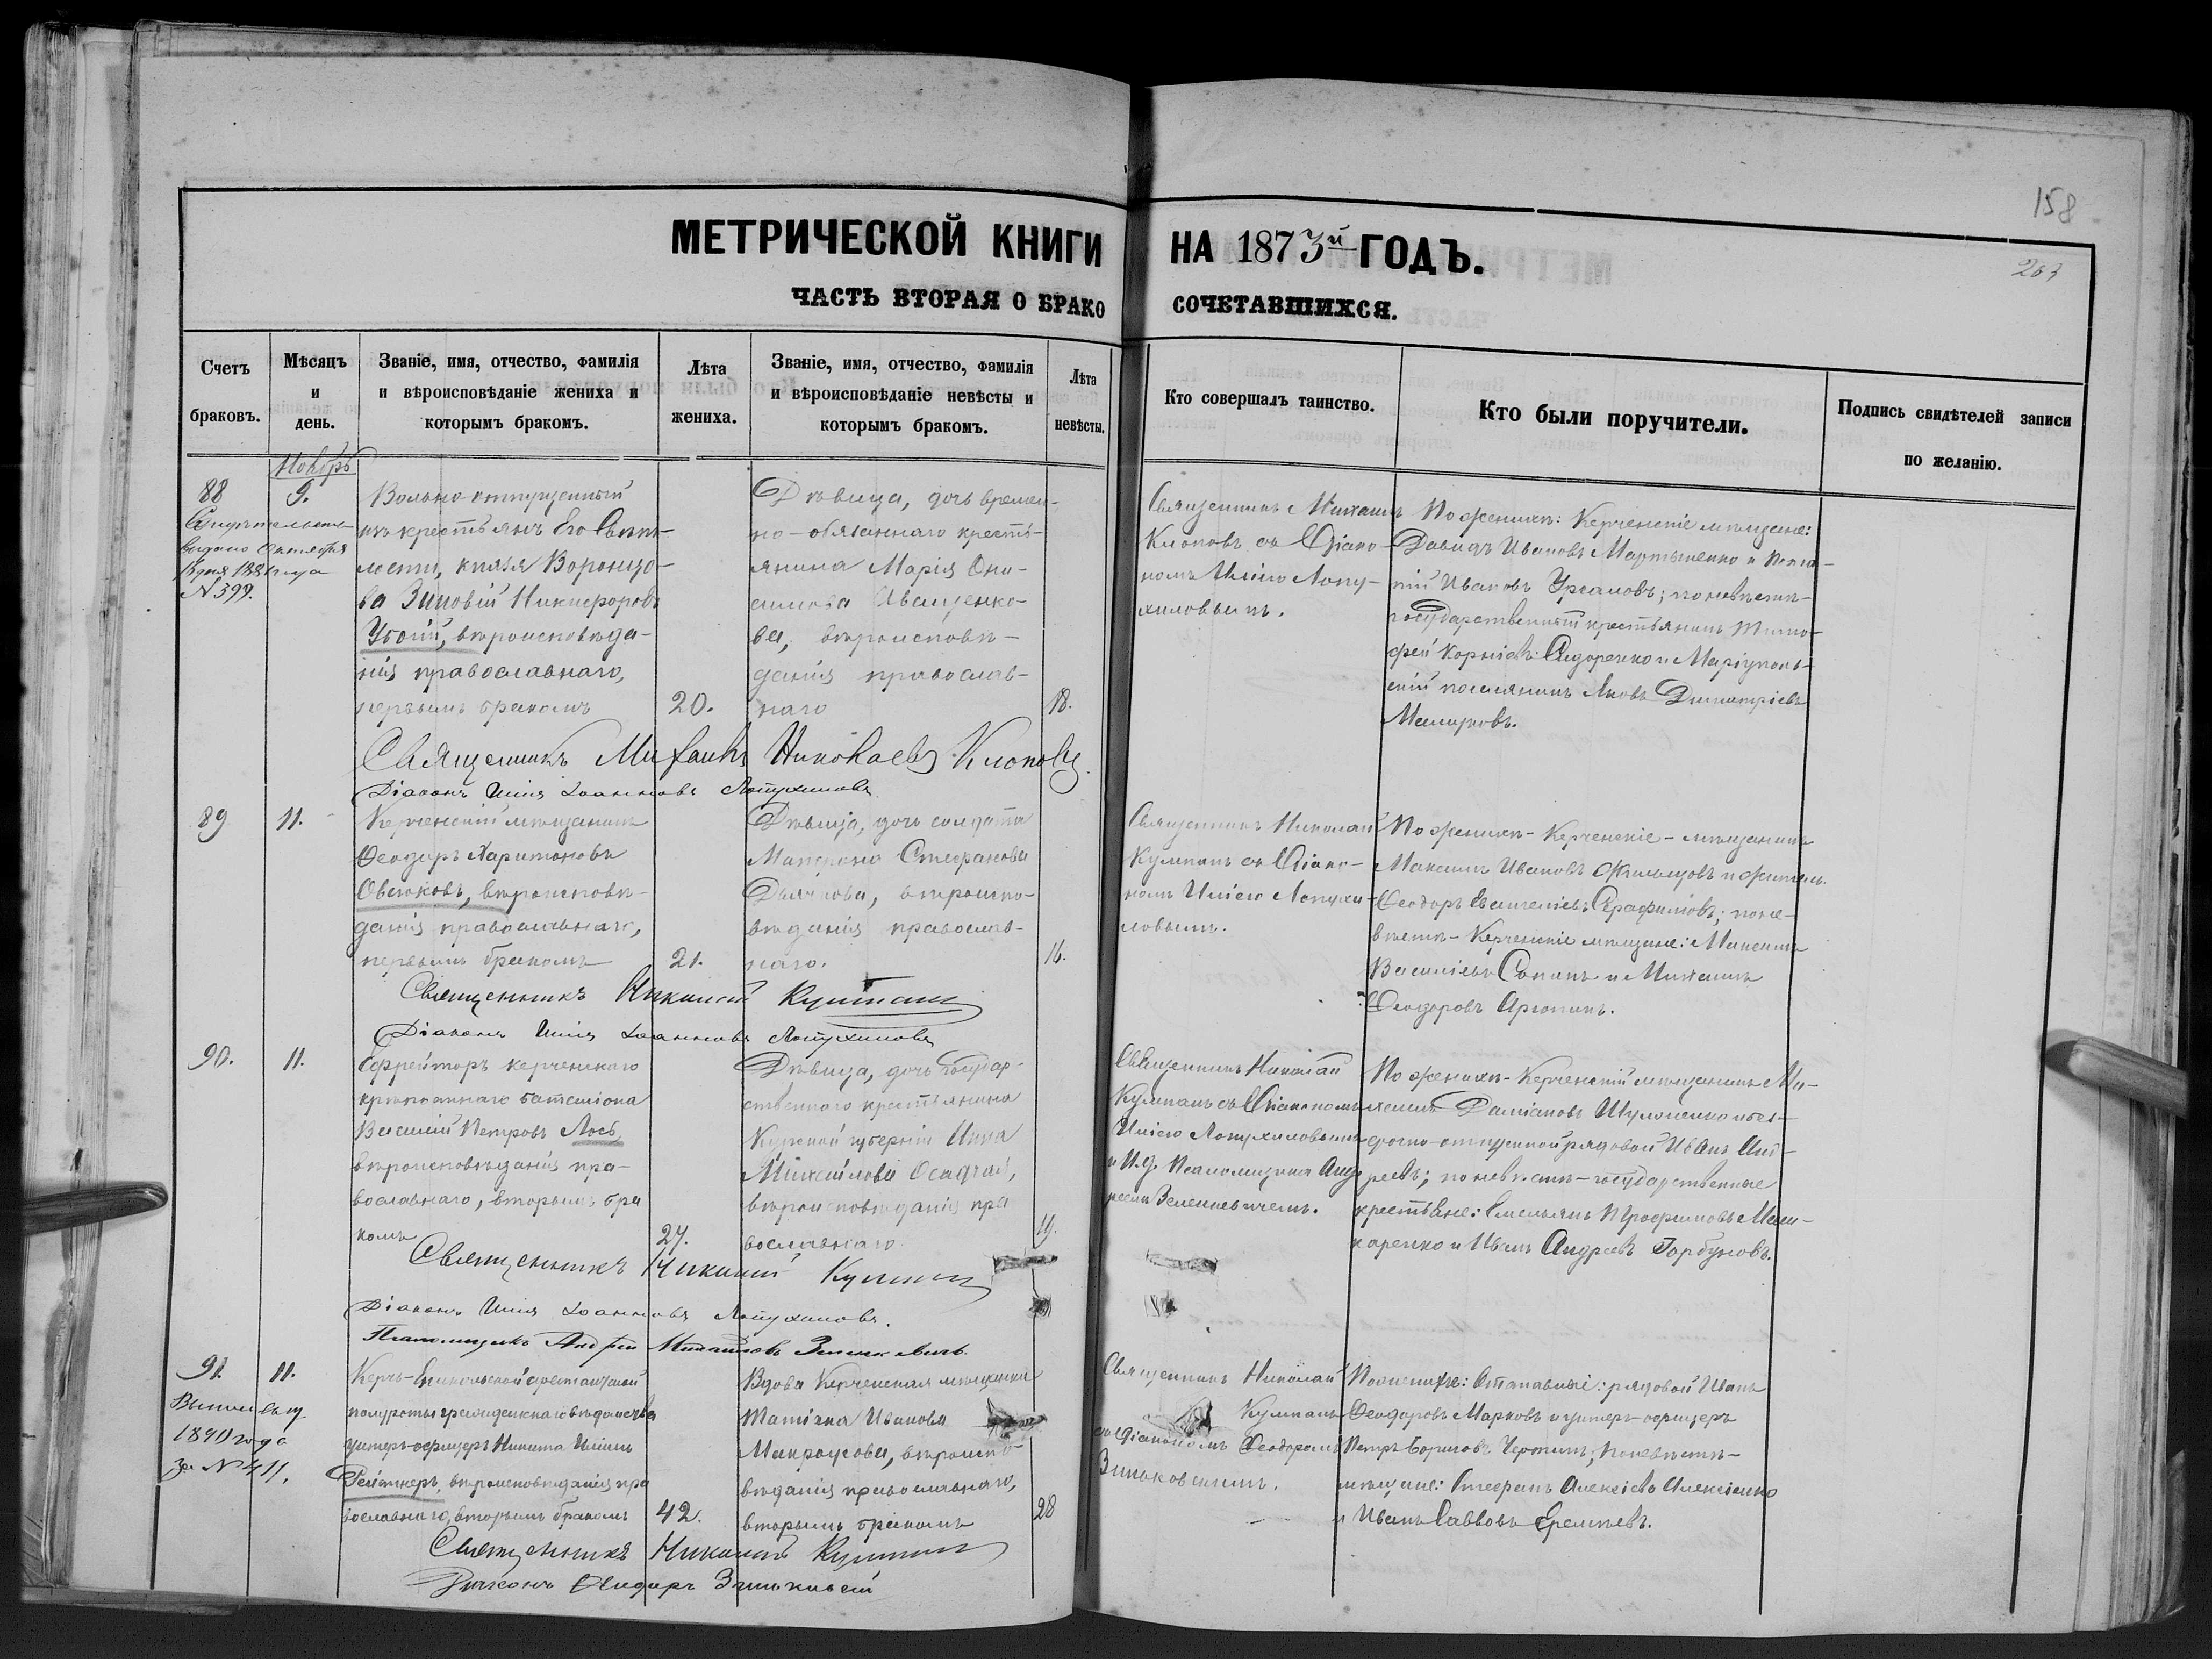 158
203
МЕТРИЧЕСКОЙ КНИГИ НА 1873й ГОДЪ.
ЧАСТЬ ВТОРАЯ О БРАКОСОЧЕТАВШИХСЯ.
Счетъ браковъ.
Мѣсяцъ и день.
Званіе, имя, отчество, фамилія и вѣроисповѣданіе жениха и которымъ бракомъ.
Лѣта жениха.
Званіе, имя, отчество, фамилія и вѣроисповѣданіе невѣсты и которымъ бракомъ.
Лѣта невѣсты.
Кто совершалъ таинство.
Кто были поручители.
Подпись свидѣтелей записи по желанію.
Ноябрь
88
9.
выдано Октября
N 399.
Вольно-отпущенный
изъ крестьянъ Его Свѣт-
лости, князя Воронцо-
ва Зиновій Никифоровъ
Убогій, вѣроисповѣда-
нія православнаго,
первымъ бракомъ
20.
Дѣвица, дочь времен-
но-обязаннаго кресть-
янина Марія Они-
симова Иващенко-
ва, вѣроисповѣ-
данія православ-
наго
18.
Священникъ Михаилъ
Клоповъ съ Діако-
номъ Иліею Лопу-
хиловымъ.
По женихѣ: Керченскіе мѣщане:
Давидъ Ивановъ Мартыненко и
Ивановъ; по невѣстѣ-
государственный крестьянинъ Тимо-
фей Корніевъ Сидоренко и Маріуполь-
скій поселянинъ Яковъ Димитріевъ
Священникъ Михаилъ Николаевъ Клоповъ.
Діаконъ Илія Іоанновъ Лопухиловъ
89
11.
Керченскій мѣщанинъ
Ѳеодоръ Харитоновъ
Овсюковъ, вѣроисповѣ-
данія православнаго,
первымъ бракомъ
21.
Дѣвица, дочь солдата
Матрона Стефанова
Дьячкова, вѣроиспо-
вѣданія православ-
наго.
16.
Священникъ Николай
Кулпанъ съ Діако-
номъ Иліею Лопухи-
ловымъ.
По женихѣ-Керченскіе-мѣщанинъ
Максимъ Ивановъ Жильцовъ и житель
Ѳеодоръ Евангеліевъ Серафимовъ; по не-
вѣстѣ-Керченскіе мѣщане:
Василіевъ и Михаилъ
Ѳеодоровъ
Священникъ Николай Кулпанъ
Діаконъ Илія Іоанновъ Лопухиловъ
90.
11.
Ефрейторъ Керченскаго
крѣпостнаго баталіона
Василій Петровъ Лось,
вѣроисповѣданія пра-
вославнаго, вторымъ бра
комъ
27.
Дѣвица, дочь государ-
ственнаго крестьянина
Курской губерніи Анна
Михайлова Осадчая,
вѣроисповѣданія пра
вославнаго.
19.
Священникъ Николай
Кулпанъ съ Діакономъ
Иліею Лопухиловымъ
и И.д. Псаломщика Анд-
реемъ Зеленкевичемъ.
По женихѣ-Керченскій мѣщанинъ Ми-
хаилъ Даміановъ и без-
срочно-отпускной рядовой Иванъ Анд-
реевъ; по невѣстѣ-государственные
крестьяне: Емельянъ Трофимовъ Мака-
ренко и Иванъ Андреевъ Горбуновъ.
Священникъ Николай Кулпанъ
Діаконъ Илія Іоанновъ Лопухиловъ.
Псаломщикъ Андрей
91.
11.
1890 года
за N 411.
Керчь-Еникольской арестантской
полуроты гражданскаго вѣдомства
унтеръ-офицеръ Никита
Рейтнеръ, вѣроисповѣданія пра
вославнаго, вторымъ бракомъ
42.
Вдова Керченская мѣщанка
Татіана Иванова
Макроусова, вѣроиспо-
вѣданія православнаго,
вторымъ бракомъ
28
Священникъ Николай
Кулпанъ
съ Діакономъ Ѳеодоромъ
Зиньковскимъ.
По женихѣ: Отставные: рядовой Иванъ
Ѳеодоровъ Марковъ и унтеръ-офицеръ
Петръ Борисовъ; по невѣстѣ-
мѣщане: Стефанъ Алексіевъ Алексіенко
и Иванъ Савовъ Еремѣевъ.
Священникъ Николай Кулпанъ
Діаконъ Ѳеодоръ Зиньковскій